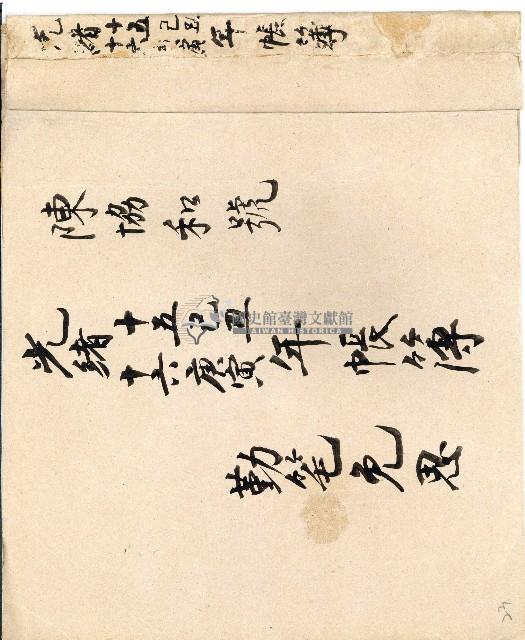 光緒十五己丑十六庚寅年帳簿
陳協和號
光緒十五己丑十六庚寅年帳簿
國史館臺灣文獻館
TAIWAN HISTORICA
勤筆免思